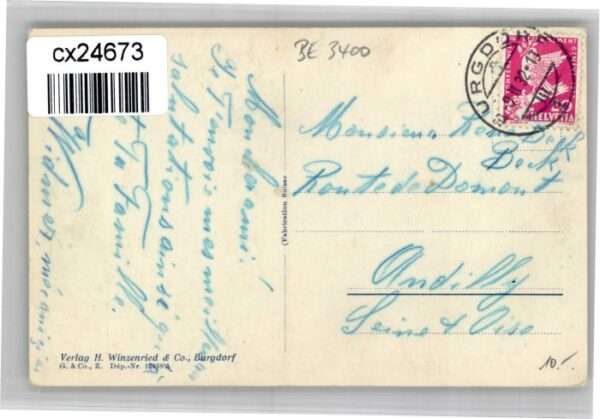 cx24673
BE 3400
BURGDORF
HELVETIA
Mon cher ami.
Je t'envoie mes meilleures
salutations ainsi qu'à
ta famille.
Monsieur René Beck
Beck
Route de Domont
Andilly
Seine & Oise
(Fabrication Suisse)
Verlag H. Winzenried & Co., Burgdorf
G. & Co., Z. Dép.-Nr.
10.-